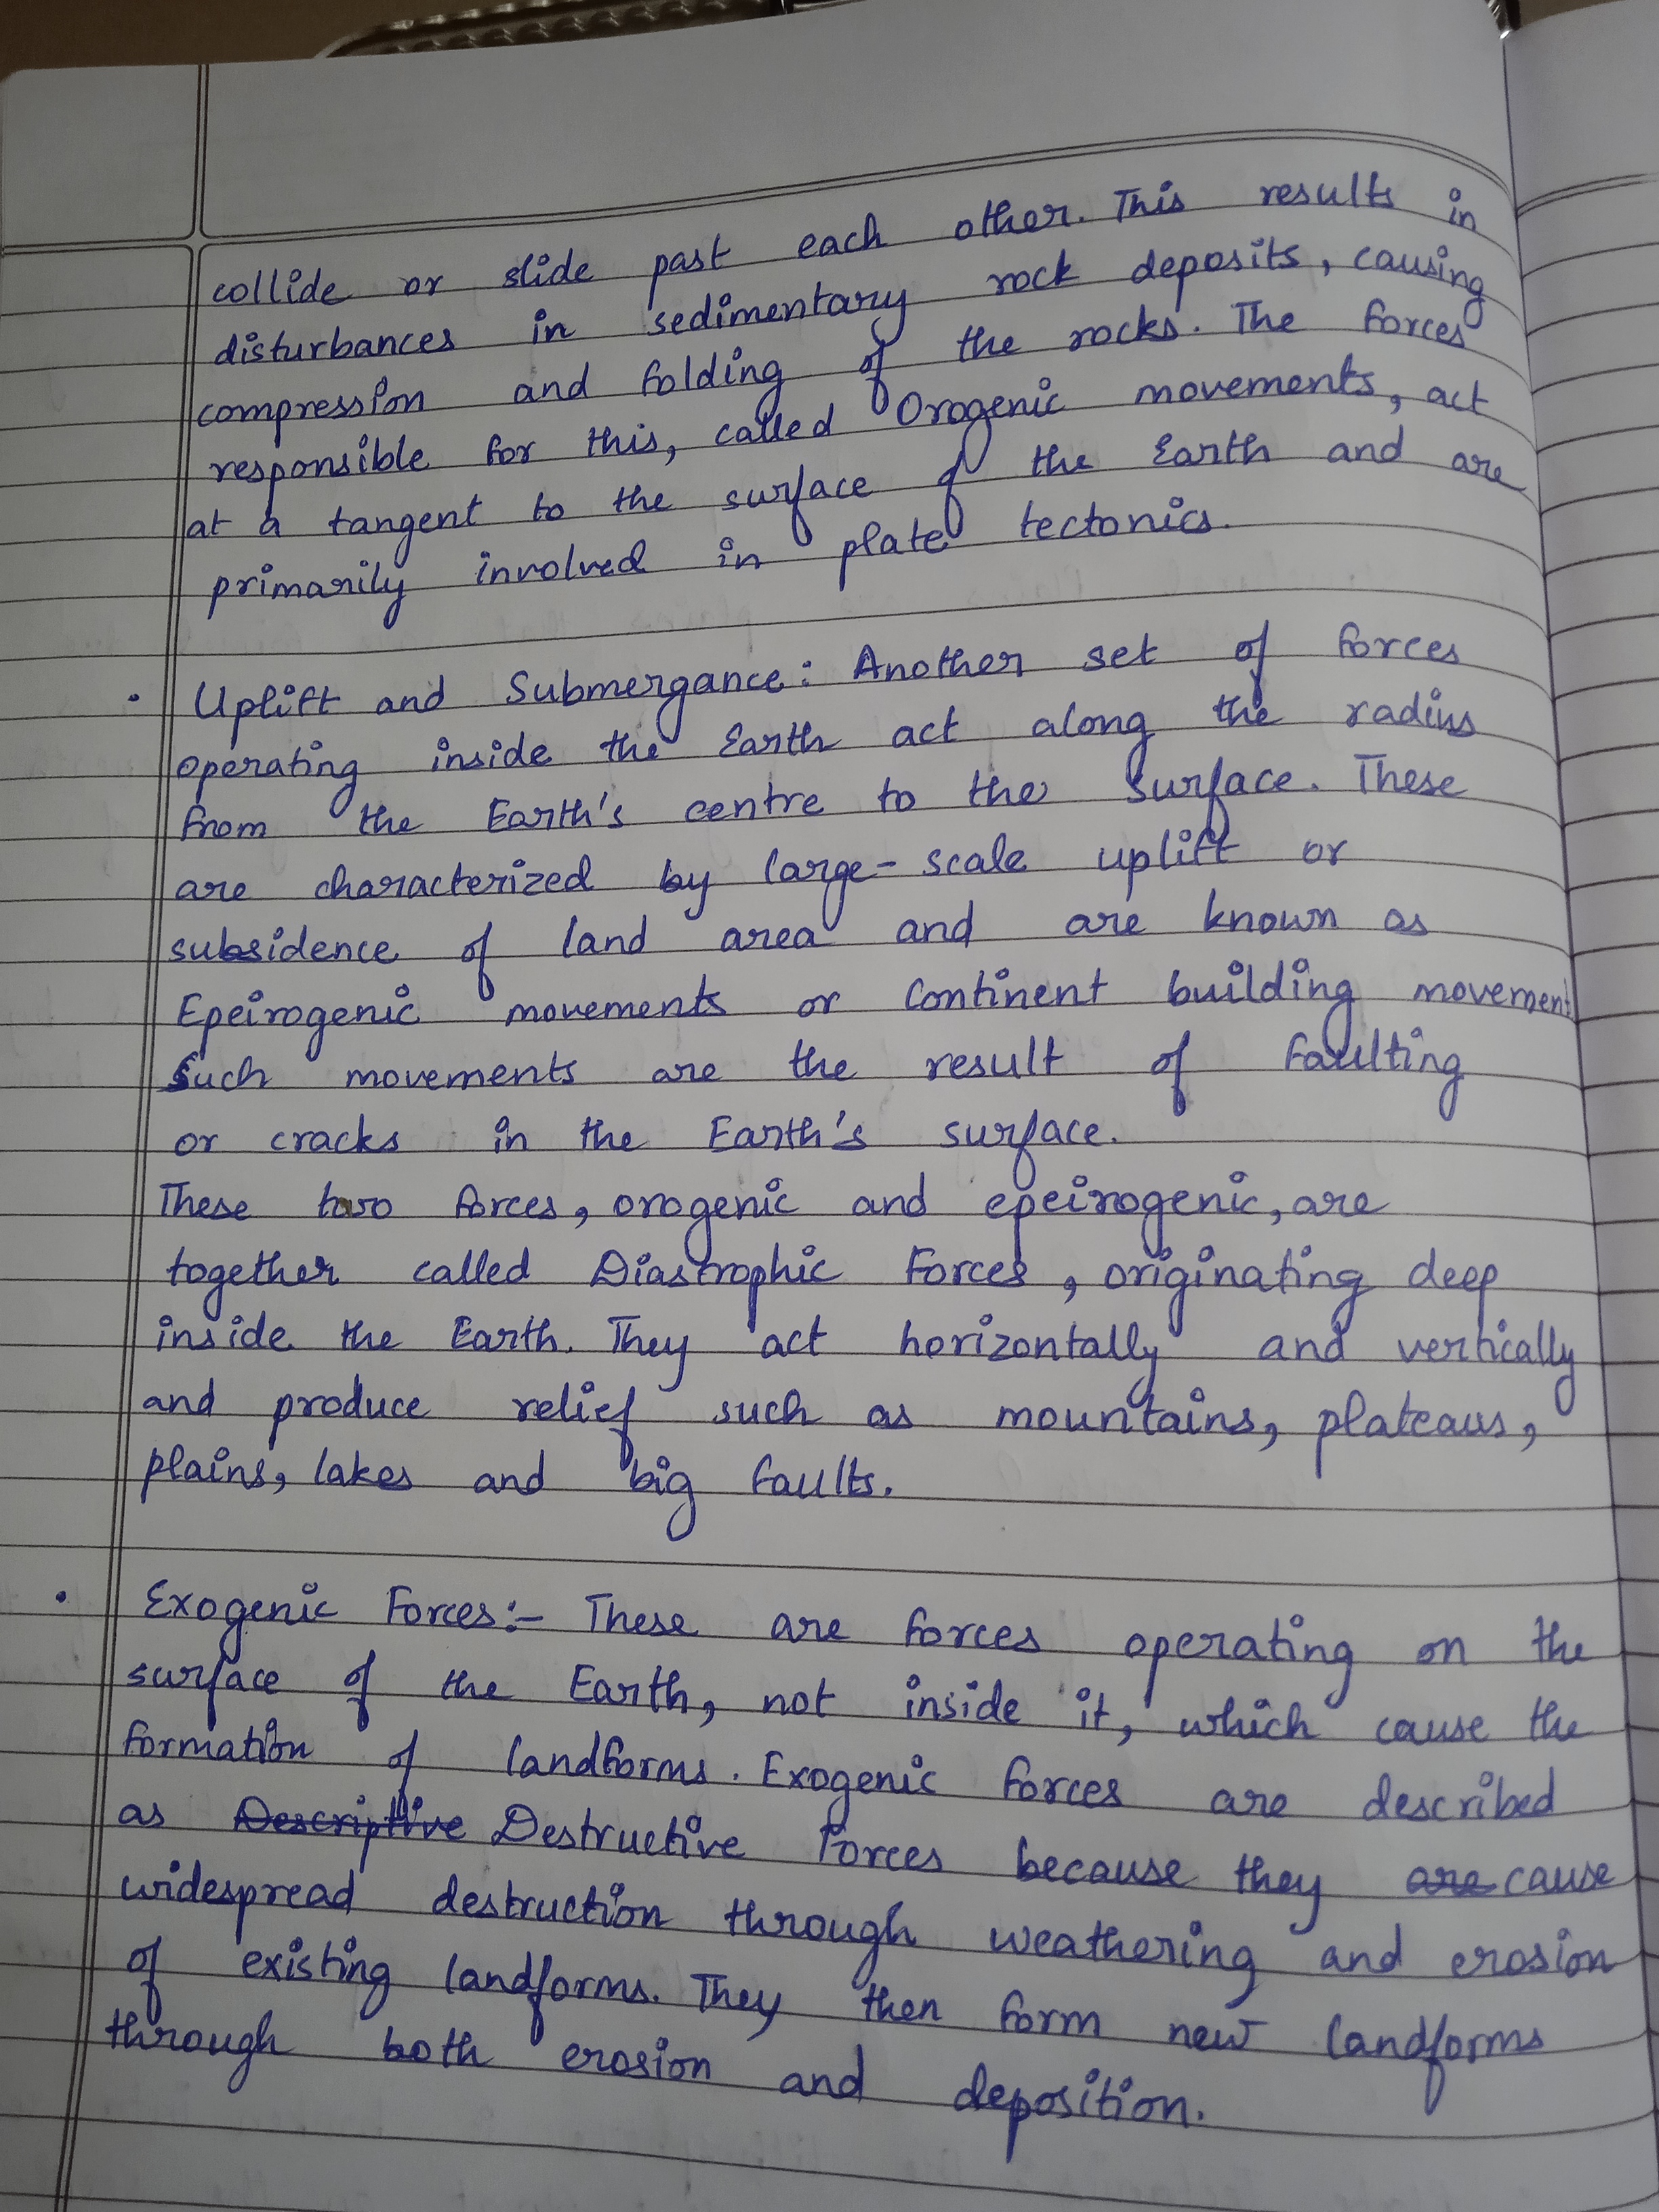 collide or slide past each other. This results in
disturbances in sedimentary rock deposits, causing
compression and folding of the rocks. The forces
responsible for this, called Orogenic movements, act
at a tangent to the surface of the Earth and are
primarily involved in plate tectonics.
• Uplift and Submergance: Another set of forces
operating inside the Earth act along the radius
from the Earth's centre to the surface. These
are characterized by large-scale uplift or
subsidence of land area and are known as
Epeirogenic movements or continent building movement
Such movements are the result of faulting
or cracks in the Earth's surface.
These two forces, orogenic and epeirogenic, are
together called Diastrophic Forces, originating deep
inside the Earth. They act horizontally and vertically
and produce relief such as mountains, plateaus,
plains, lakes and big faults.
• Exogenic Forces:- These are forces operating on the
surface of the Earth, not inside it, which cause the
formation of landforms. Exogenic forces are described
as Descriptive Destructive Forces because they are cause
widespread destruction through weathering and erosion
of existing landforms. They then form new landforms
through both erosion and deposition.